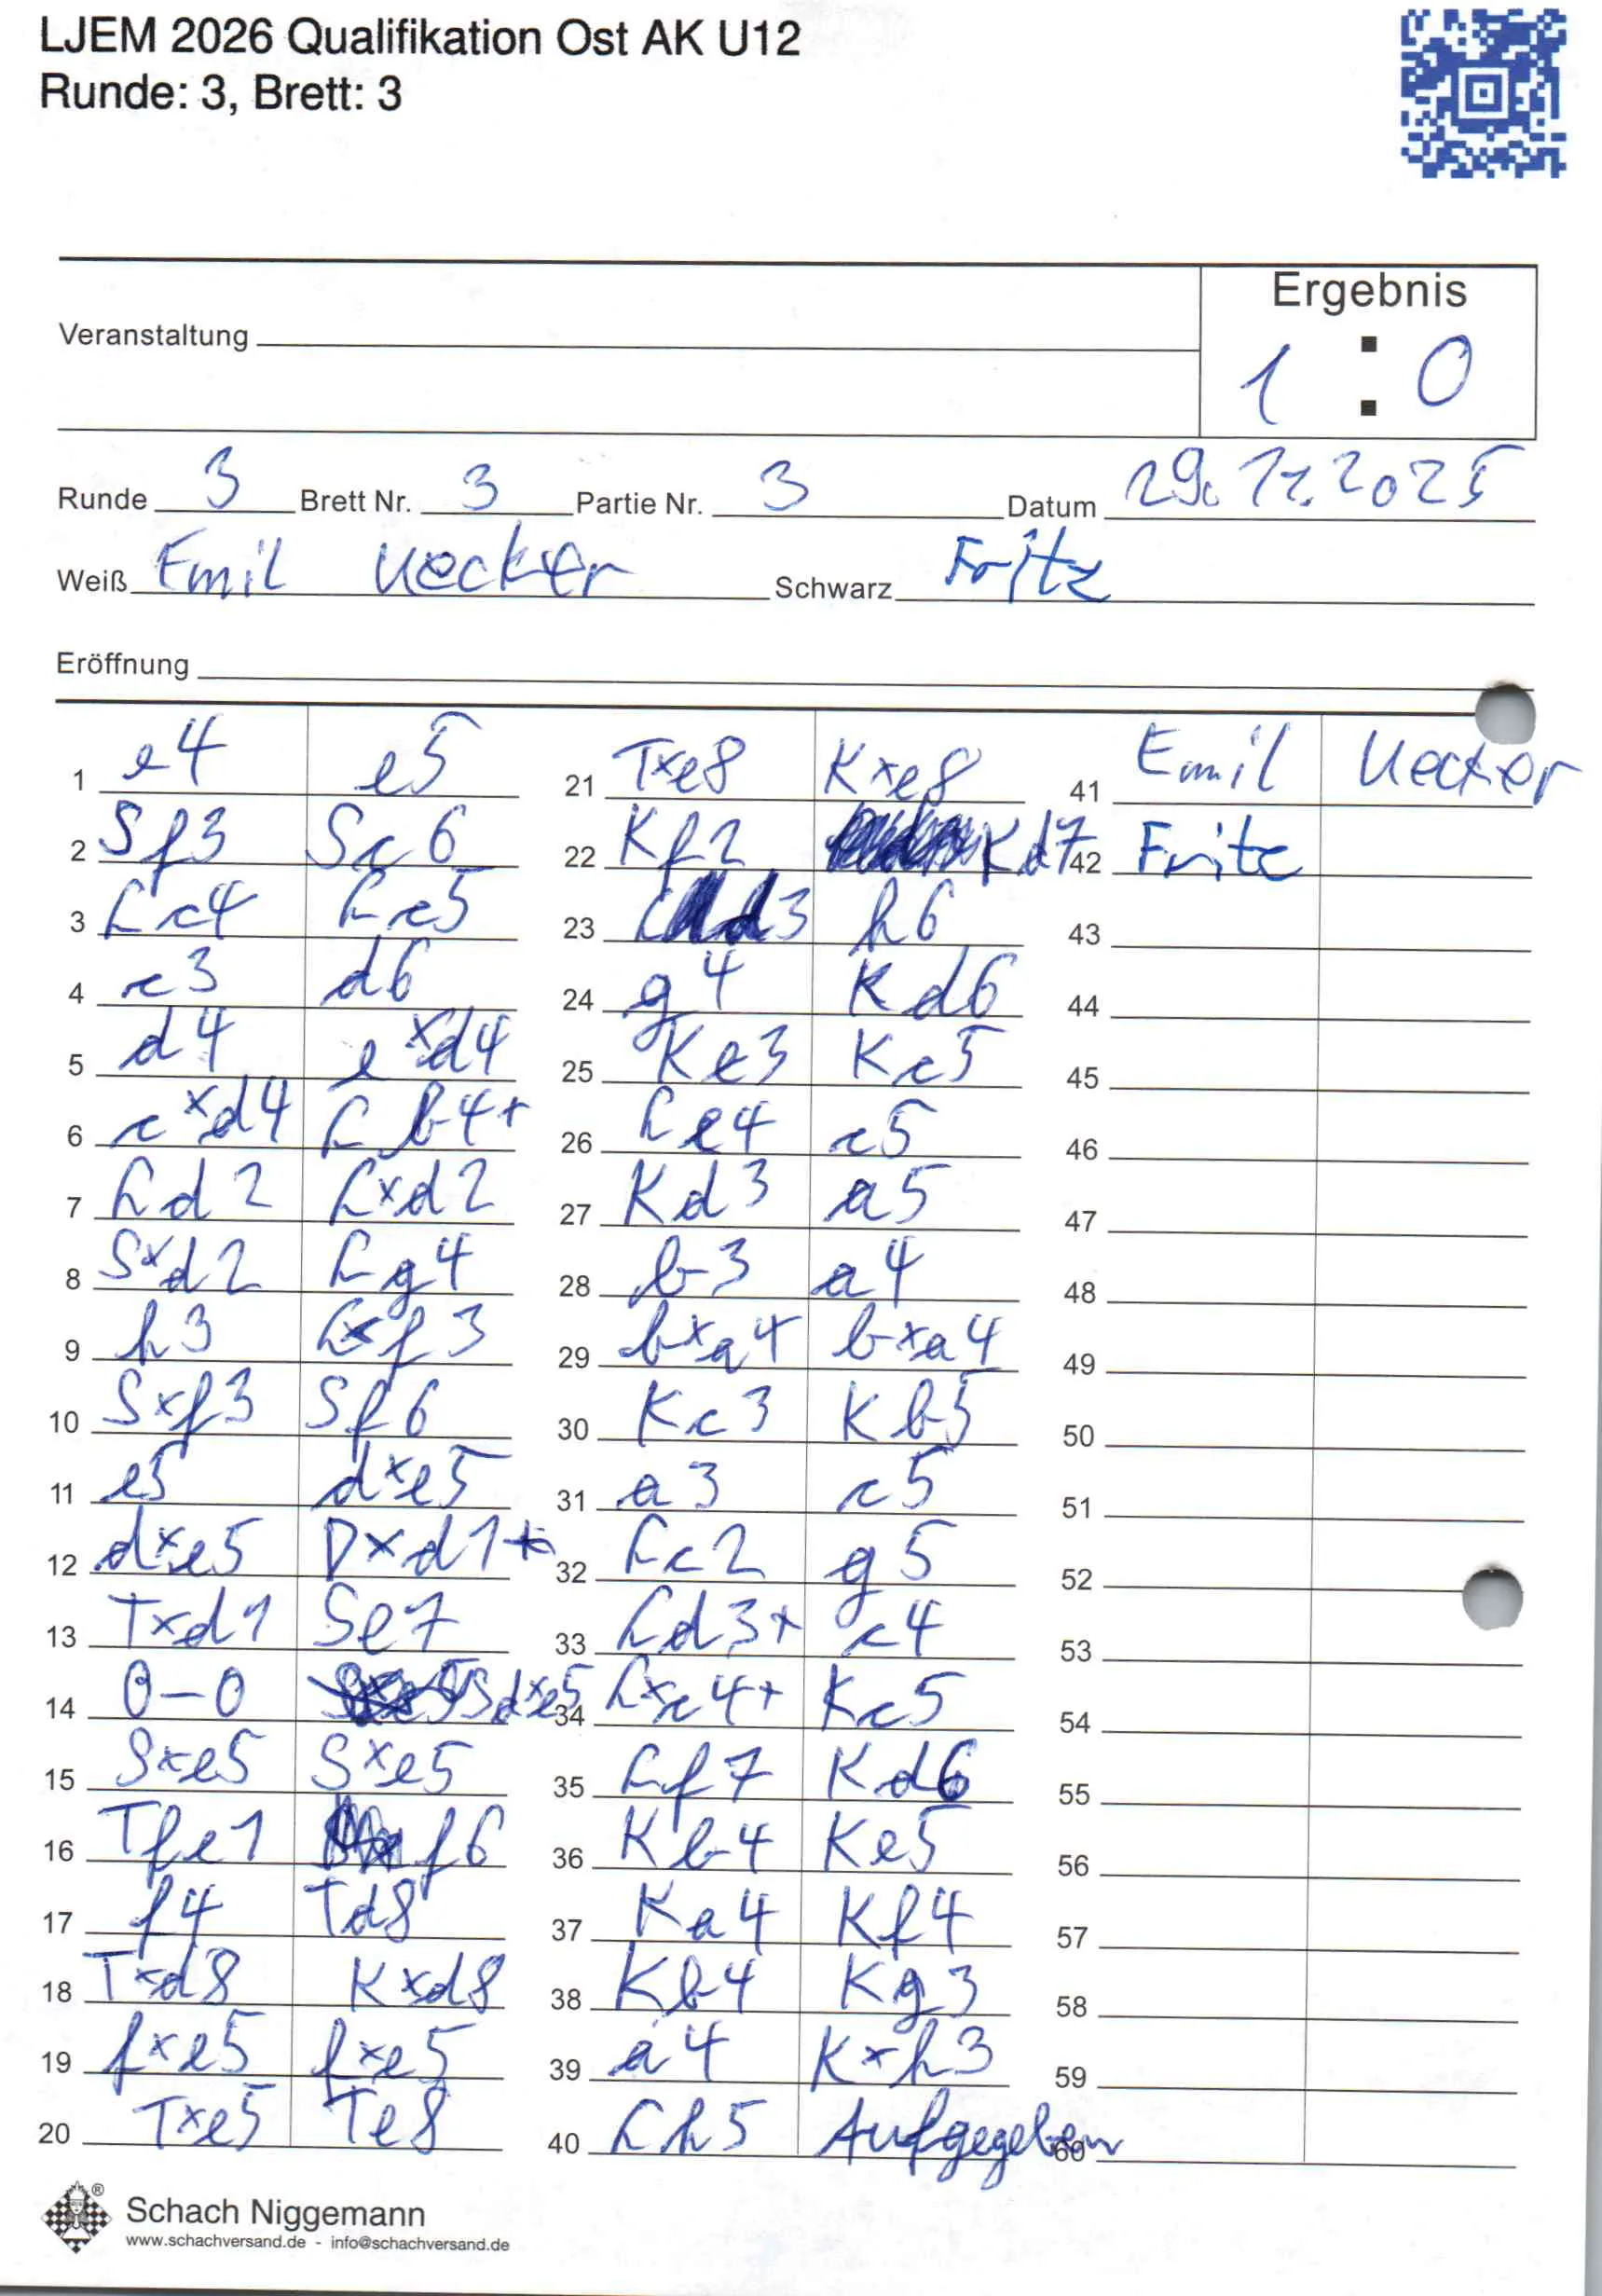 LJEM 2026 Qualifikation Ost AK U12
Runde: 3, Brett: 3
Ergebnis
Veranstaltung
1 : 0
Runde 3 Brett Nr. 3 Partie Nr. 3 Datum 29.11.2025
Weiß Emil Uecker Schwarz Fritz
Eröffnung
1 e4 e5
2 Sf3 Sc6
3 Lc4 Lc5
4 c3 d6
5 d4 exd4
6 cxd4 Lb4+
7 Ld2 Lxd2
8 Sxd2 Lg4
9 h3 Lxf3
10 Sxf3 Sf6
11 e5 dxe5
12 dxe5 Dxd1+
13 Txd1 Se7
14 0-0 Sdxe5
15 Sxe5 Sxe5
16 Tfe1 f6
17 f4 Td8
18 Txd8 Kxd8
19 fxe5 fxe5
20 Txe5 Te8
21 Txe8 Kxe8
22 Kf2 Kd7
23 Ld3 h6
24 g4 Kd6
25 Ke3 Kc5
26 Le4 c5
27 Kd3 a5
28 b3 a4
29 bxa4 bxa4
30 Kc3 Kb5
31 a3 c5
32 Lc2 g5
33 Ld3+ c4
34 Lxc4+ Kc5
35 Lf7 Kd6
36 Kb4 Ke5
37 Ka4 Kf4
38 Kb4 Kg3
39 a4 Kxh3
40 Lh5 Aufgegeben
41 Emil Uecker
42 Fritz
43
44
45
46
47
48
49
50
51
52
53
54
55
56
57
58
59
60
Schach Niggemann ®
www.schachversand.de - info@schachversand.de